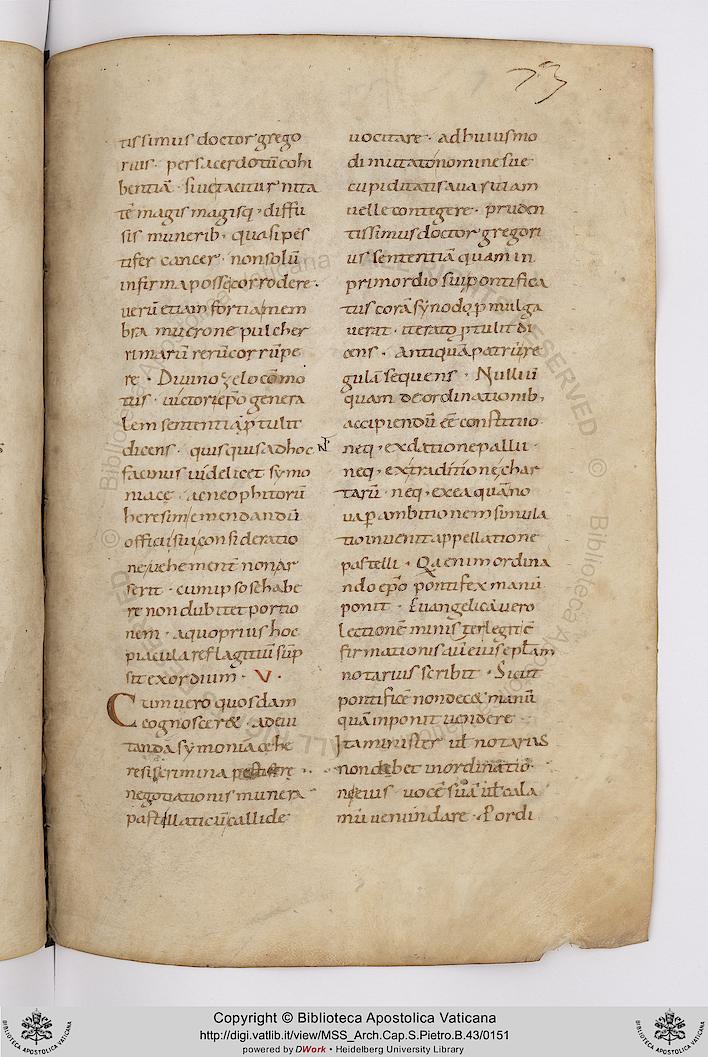 73
tissimus doctor grego
rius · per sacerdotū cohi
bentiā · si uetacitur nita
tē magis magisq; diffu
sis munerib; quasi pes
tifer cancer · non solū
infirma posse corrodere ·
verū etiam fortia mem
bra mucrone pulcher
rimarū rerū corrūpe
re · Divino zelo cōmo
tus · victori ep̄o genera
lem sententiā ptulit
dicens · quisquis ad hoc
facinus videlicet symo
niacę · ac neophitorū
heresim emendandū
officii sui consideratio
ne vehement non ar
serit · cum ipso se habe
re non dubitet portio
nem · a quo prius hoc
piaculare flagitiū sūp
sit exordium · V ·
Cum vero quosdam
cognosceret · ad evi
tanda symoniacę he
resis crimina pestiferę
negotiationis munera
pastellaticū callide
uocitare · ad huiusmo
di mutato nomine sue
cupiditatis auaritiam
uelle contegere · pruden
tissimus doctor gregori
us sententiā quam in
primordio sui pontifica
tus corā synodo pmulga
uerat · iterato ptulit di
cens · Antiquā patrū re
gulā sequens · Nullū
quam de ordinationib;
accipiendū eē constituo ·
neq; ex datione pallii ·
neq; ex traditione char
tarū · neq; ex ea quā no
ua p ambitionem simula
tio inuenit appellatione
pastelli · Quia enim ordina
ndo ep̄o pontifex manū
ponit · Euangelicā uero
lectionē minister legit ·
confirmationis autē eius epłam
notarius scribit · Sicut
pontificē non decet manū
quā inponit uendere
Ita minister ul notarius
non debet in ordinatio
ne eius uocē suā ul cala
mū uenundare · P ordi
Copyright © Biblioteca Apostolica Vaticana
http://digi.vatlib.it/view/MSS_Arch.Cap.S.Pietro.B.43/0151
powered by DWork • Heidelberg University Library